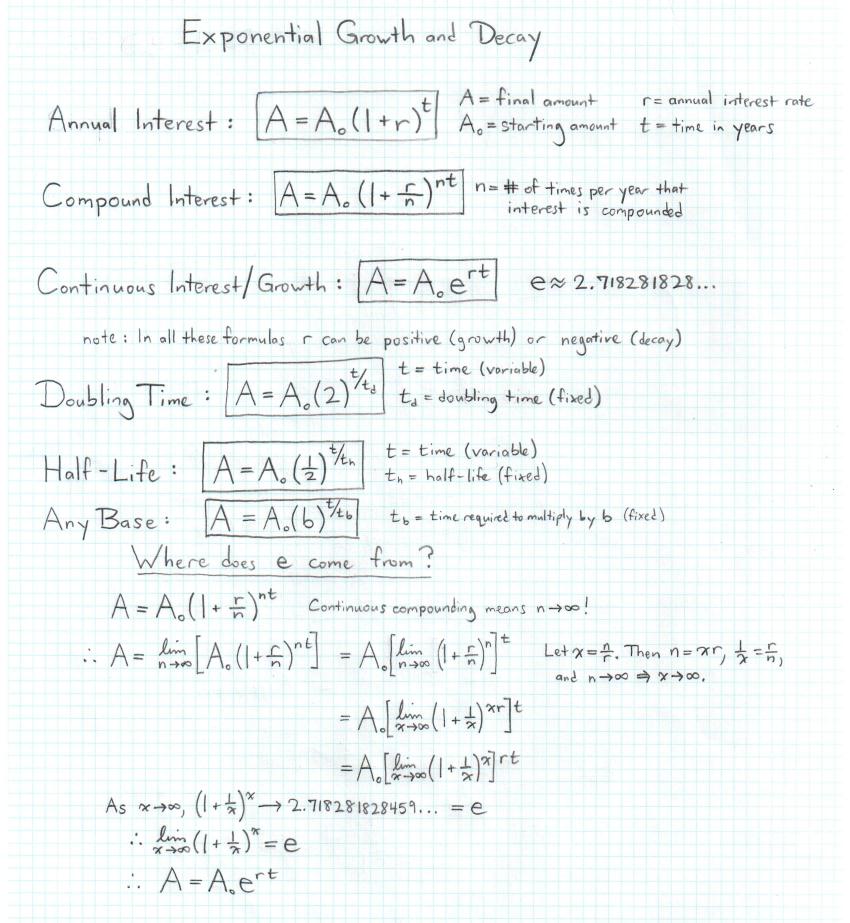 Exponential Growth and Decay
Annual Interest : A = A₀(1+r)^t A = final amount r = annual interest rate
A₀ = starting amount t = time in years
Compound Interest : A = A₀(1 + r/n)^nt n = # of times per year that
interest is compounded
Continuous Interest/Growth : A = A₀e^rt e ≈ 2.718281828...
note : In all these formulas r can be positive (growth) or negative (decay)
Doubling Time : A = A₀(2)^t/t_d t = time (variable)
t_d = doubling time (fixed)
Half-Life : A = A₀(1/2)^t/t_h t = time (variable)
t_h = half-life (fixed)
Any Base : A = A₀(b)^t/t_b t_b = time required to multiply by b (fixed)
Where does e come from?
A = A₀(1 + r/n)^nt Continuous compounding means n→∞!
∴ A = lim n→∞ [A₀(1+r/n)^nt] = A₀[lim n→∞ (1+r/n)^n]^t Let x = n/r. Then n = xr, 1/x = r/n,
and n→∞ ⇒ x→∞.
= A₀[lim x→∞ (1+1/x)^xr]^t
= A₀[lim x→∞ (1+1/x)^x]^rt
As x→∞, (1+1/x)^x → 2.718281828459... = e
∴ lim x→∞ (1+1/x)^x = e
∴ A = A₀e^rt